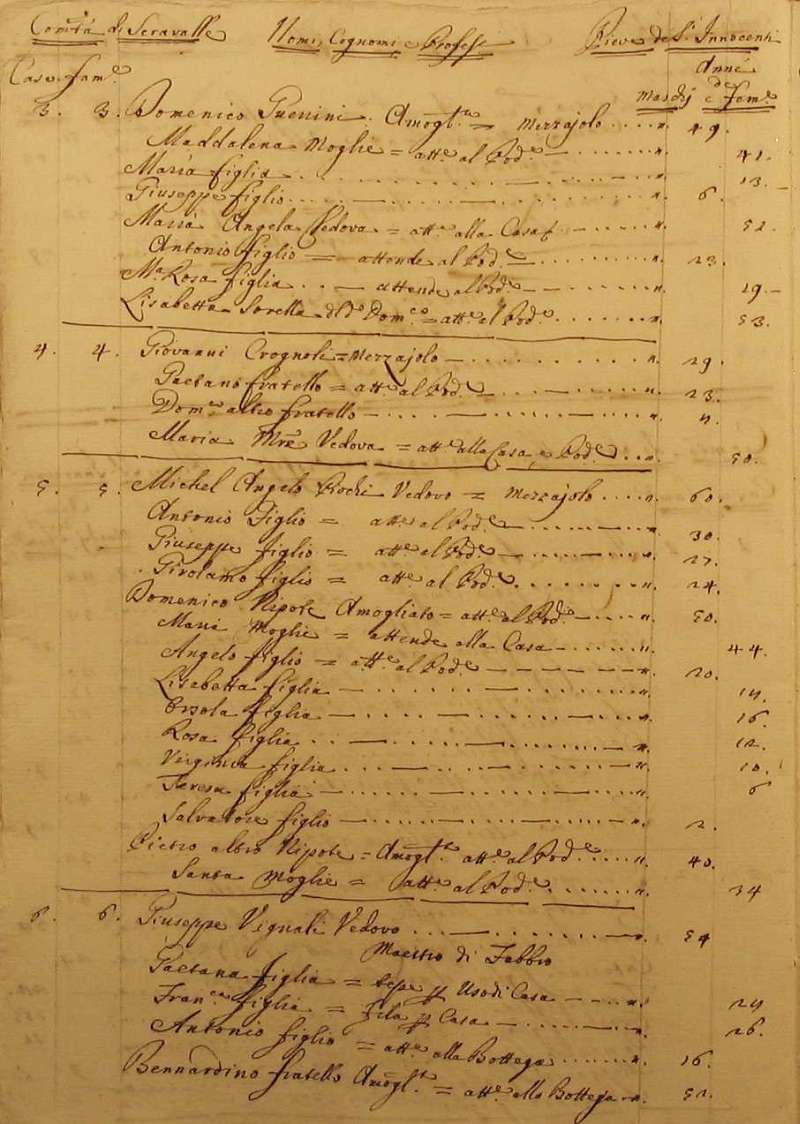 Com.tà di Seravalle Nomi, Cognomi, e Profess.i Pieve de SS. Innocenti
Case. Fam.e Anni
de
Maschj e Fem.e
3. 3. Domenico Guerrini. Amogl.to = Mezzajolo .... ". 49.
Maddalena Moglie = att.e al Pod.e ". 41.
Maria figlia ". 13.
Giuseppe figlio ". 6.
Maria Angela Vedova = att.e alla Casa ". 51.
Antonio figlio = attende al Pod.e ". 23.
M.a Rosa figlia attende al Pod.e ". 19.
Lisabetta Sorella di d.o Dom.co = att.e al Pod.e ". 53.
4. 4. Giovanni Crognoli = Mezzajolo ". 29.
Gaetano fratello = att.e al Pod.e ". 23.
Dom.co altro fratello ".
Maria M.re Vedova = att.e alla Casa, e Pod.e ". 50.
5. 5. Michel Angelo Vedovo = Mezzajolo .... ". 60.
Antonio Figlio = att.e al Pod.e ". 30.
Giuseppe figlio = att.e al Pod.e ". 27.
Girolamo figlio = att.e al Pod.e ". 24.
Domenico Nipote Amogliato = att.e al Pod.e ". 50.
Maria Moglie = attende alla Casa ". 44.
Angelo figlio = att.e al Pod.e ". 20.
Lisabetta figlia ".
Orsola figlia ". 16.
Rosa figlia ". 12.
Virginia figlia ". 10.
Teresa figlia ". 6
Salvatore figlio ". 2.
Pietro altro Nipote = Amogl.to att.e al Pod.e ". 40.
Santa Moglie = att.e al Pod.e ". 34
6. 6. Giuseppe Vignali Vedovo ". 54
Maestro di Fabbro
Gaetana figlia = tesse p Uso di Casa ".
Fran.ca figlia = fila p Casa ". 26.
Antonio figlio = att.e alla Bottega ". 16.
Bernardino fratello Amogl.to = att.e alla Bottega ". 51.